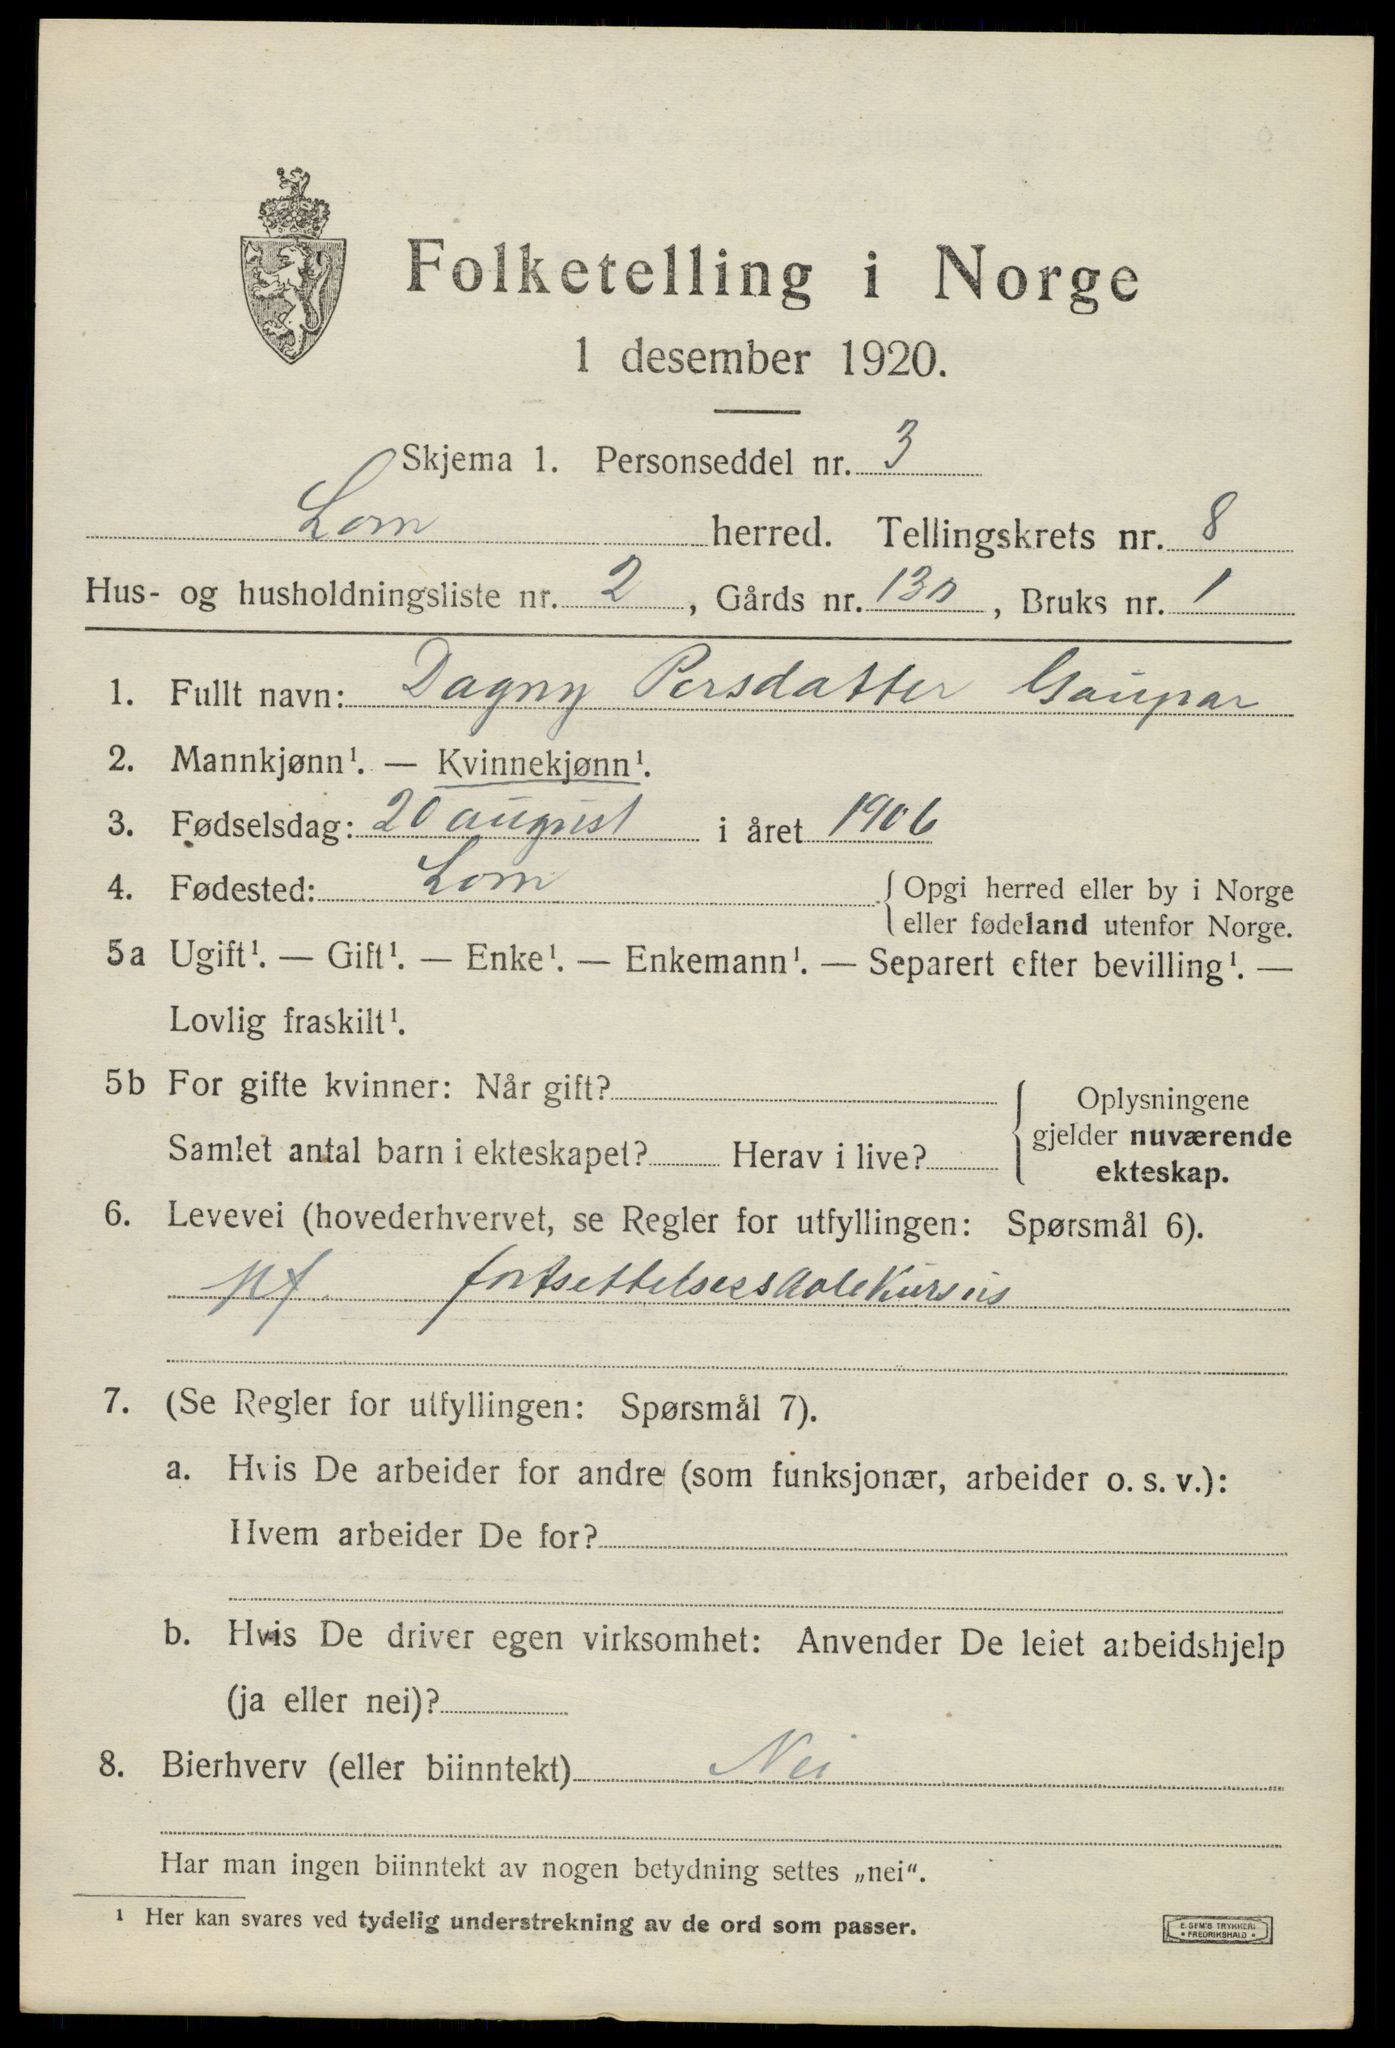 Folketelling i Norge
1 desember 1920.
Skjema 1. Personseddel nr. 3
Lom herred. Tellingskrets nr. 8
Hus- og husholdningsliste nr. 2, Gårds nr. 130, Bruks nr. 1
1. Fullt navn: Dagny Persdatter Gaupar
2. Mannkjønn¹. — Kvinnekjønn¹.
3. Fødselsdag: 20 august i året 1906
4. Fødested: Lom {Opgi herred eller by i Norge
eller fødeland utenfor Norge.
5a Ugift¹. — Gift¹. — Enke¹. — Enkemann¹. — Separert efter bevilling¹. —
Lovlig fraskilt¹.
5b For gifte kvinner: Når gift?
Samlet antal barn i ekteskapet? Herav i live?
{Oplysningene
gjelder nuværende
ekteskap.
6. Levevei (hovederhvervet, se Regler for utfyllingen: Spørsmål 6).
fortsettelsesskolekursus
7. (Se Regler for utfyllingen: Spørsmål 7).
a. Hvis De arbeider for andre (som funksjonær, arbeider o. s. v.):
Hvem arbeider De for?
b. Hvis De driver egen virksomhet: Anvender De leiet arbeidshjelp
(ja eller nei)?
8. Bierhverv (eller biinntekt) Nei
Har man ingen biinntekt av nogen betydning settes „nei“.
¹ Her kan svares ved tydelig understrekning av de ord som passer.
E. SEM'S TRYKKERI
• FREDRIKSHALD •